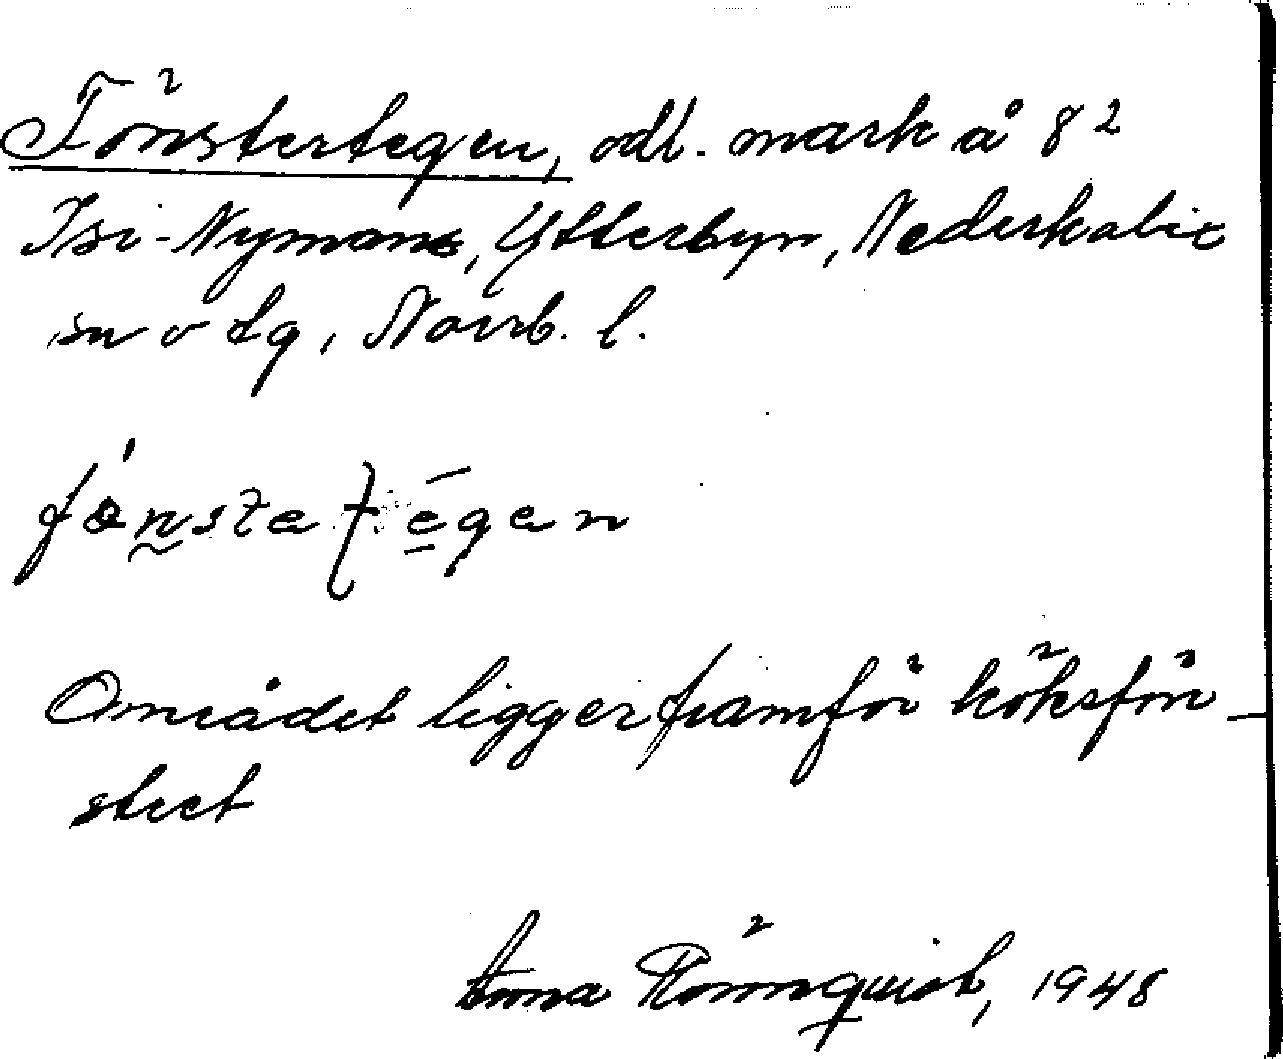 Fönstertegen, odl. mark å 8²
Isi-Nymans, Ytterbyn, Nederkalix
sn o tg, Norrb. l.
Området ligger framför köksfön-
stret
Anna Rönnquist, 1948